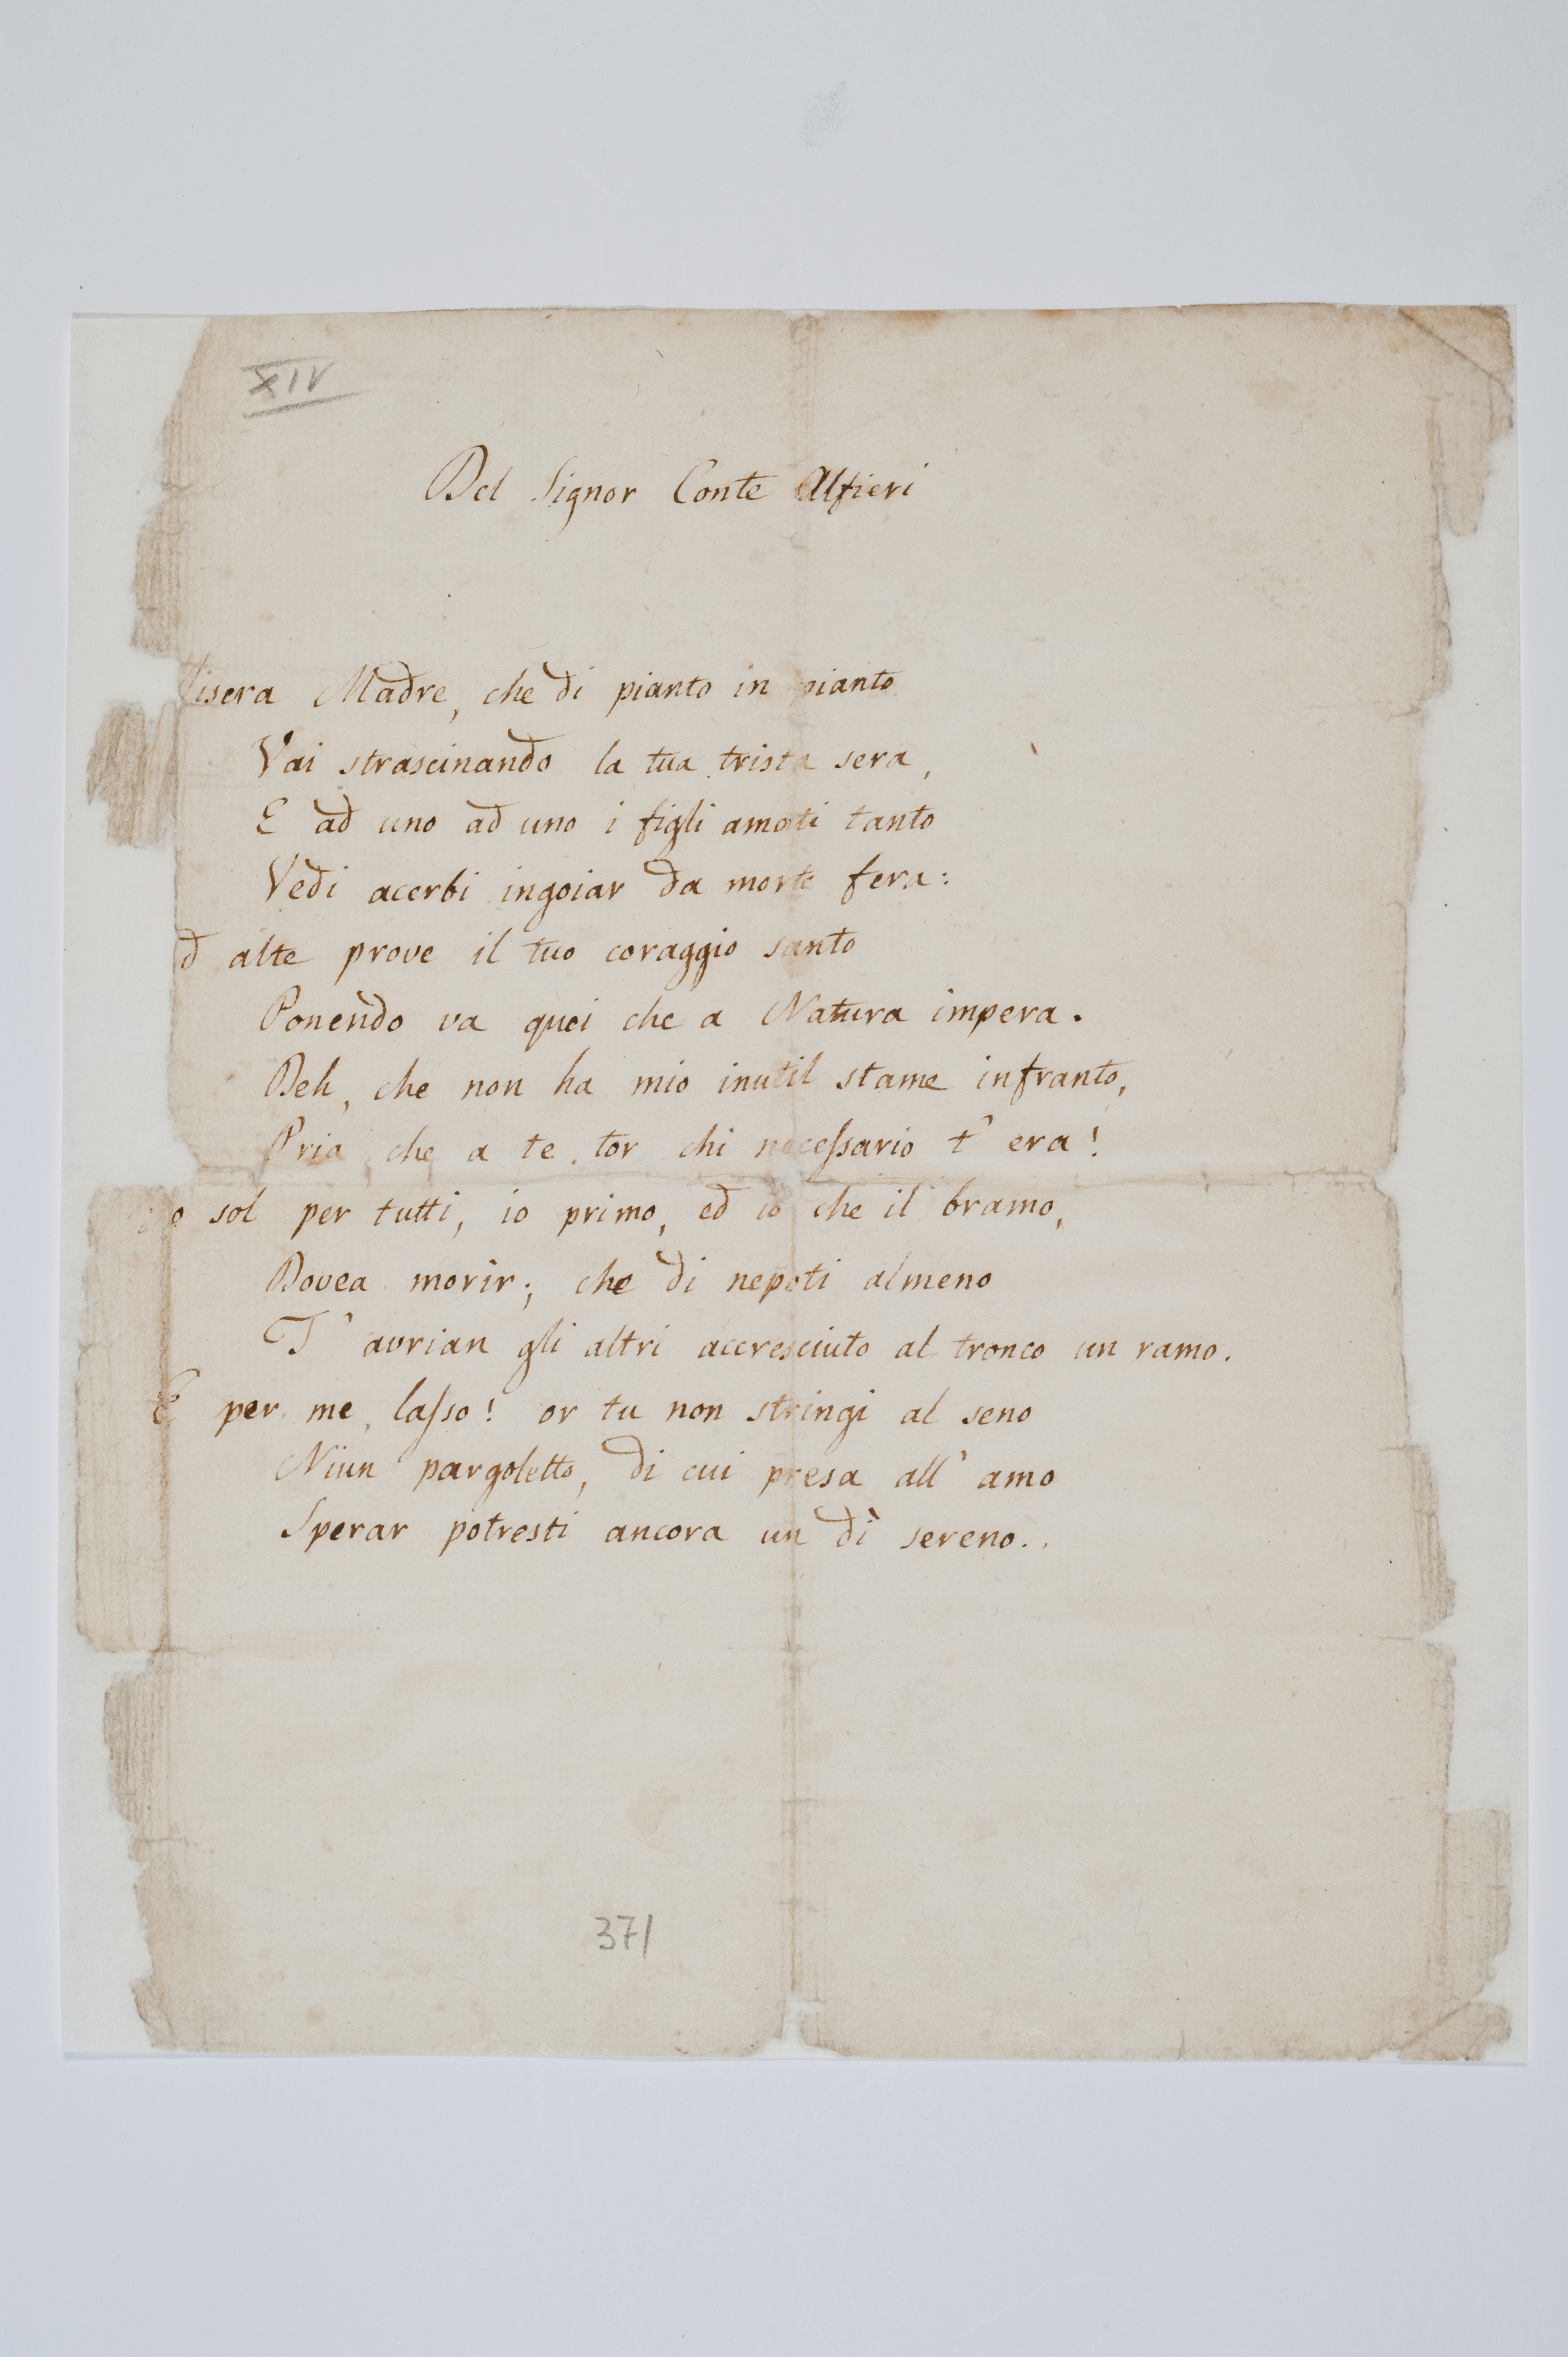 XIV
Del Signor Conte Alfieri
Misera Madre, che di pianto in pianto
Vai strascinando la tua trista sera,
E ad uno ad uno i figli amati tanto
Vedi acerbi ingoiar da morte fera:
d alte prove il tuo coraggio santo
Ponendo va quei che a Natura impera.
Deh, che non ha mio inutil stame infranto,
Pria che a te tor chi necessario t' era!
Io sol per tutti, io primo, ed io che il bramo,
Dovea morir; che di nepoti almeno
T' avrian gli altri accresciuto al tronco un ramo.
E per me, lasso! or tu non stringi al seno
Niun pargoletto, di cui presa all' amo
Sperar potresti ancora un dì sereno..
371